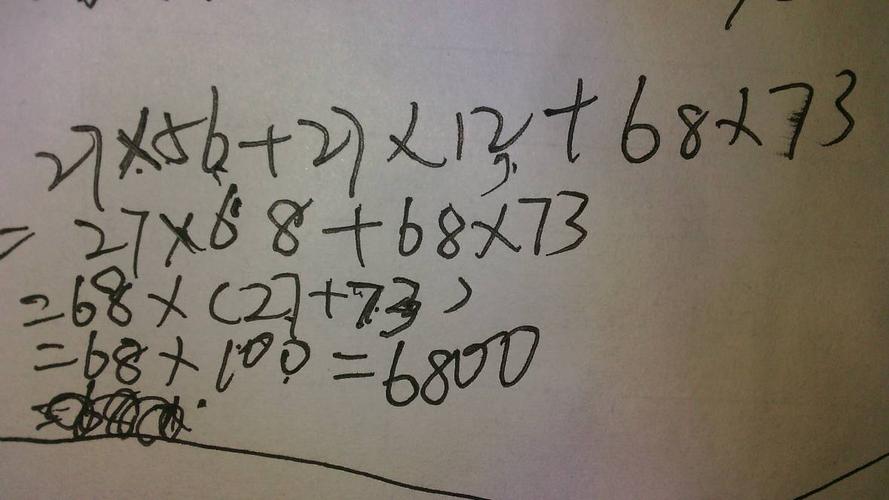 27×56+27×12+68×73
= 27×68+68×73
=68×(27+73)
=68×100=6800